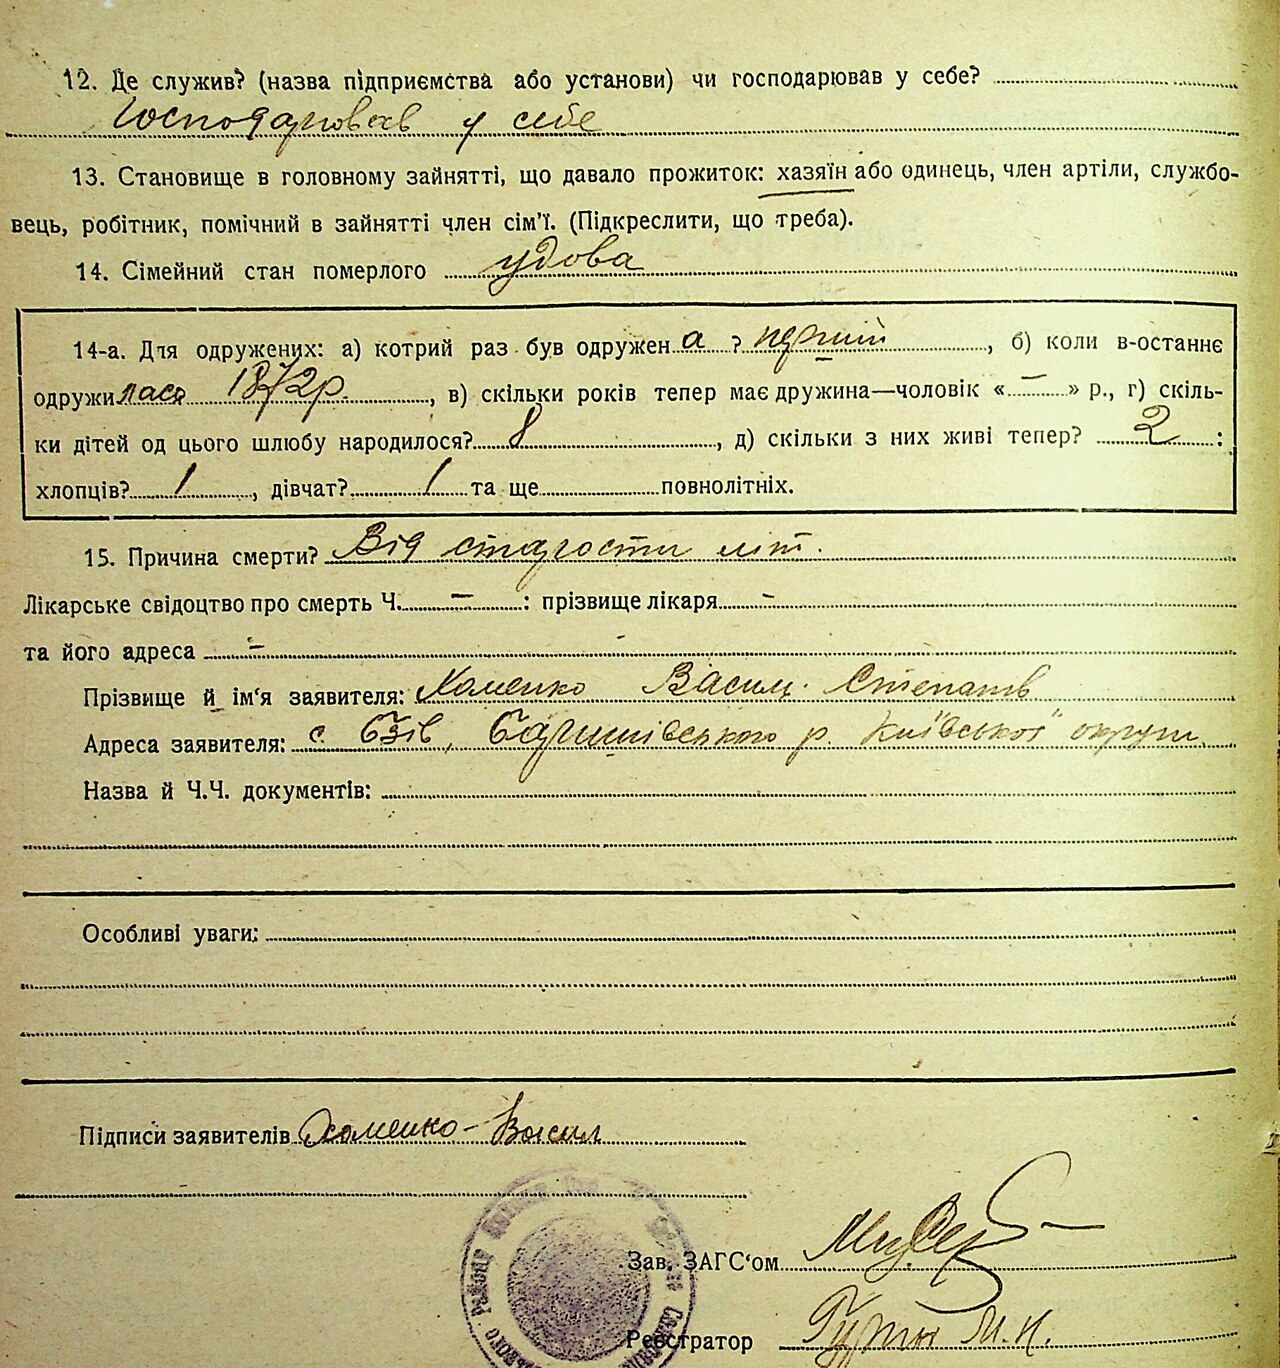 12. Де служив? (назва підприємства або установи) чи господарював у себе?
Господарював у себе
13. Становище в головному зайнятті, що давало прожиток: хазяїн або одинець, член артіли, службо-
вець, робітник, помічний в зайнятті член сім'ї. (Підкреслити, що треба).
14. Сімейний стан померлого удова
14-а. Для одружених: а) котрий раз був одружен а ? перший, б) коли в-останнє
одружилася 1872 р., в) скільки років тепер має дружина—чоловік « — » р., г) скіль-
ки дітей од цього шлюбу народилося? 8, д) скільки з них живі тепер? 2 :
хлопців? 1, дівчат? 1 та ще повнолітніх.
15. Причина смерти? Від старости літ.
Лікарське свідоцтво про смерть Ч. — : прізвище лікаря -
та його адреса —
Прізвище й ім'я заявителя: Хоменко Васил. Степанів
Адреса заявителя: с. Бзів, Баришівського р. Київської округи
Назва й Ч.Ч. документів:
Особливі уваги:
Підписи заявителів Хоменко - Васил
Зав. ЗАГС'ом
Реєстратор М. К.